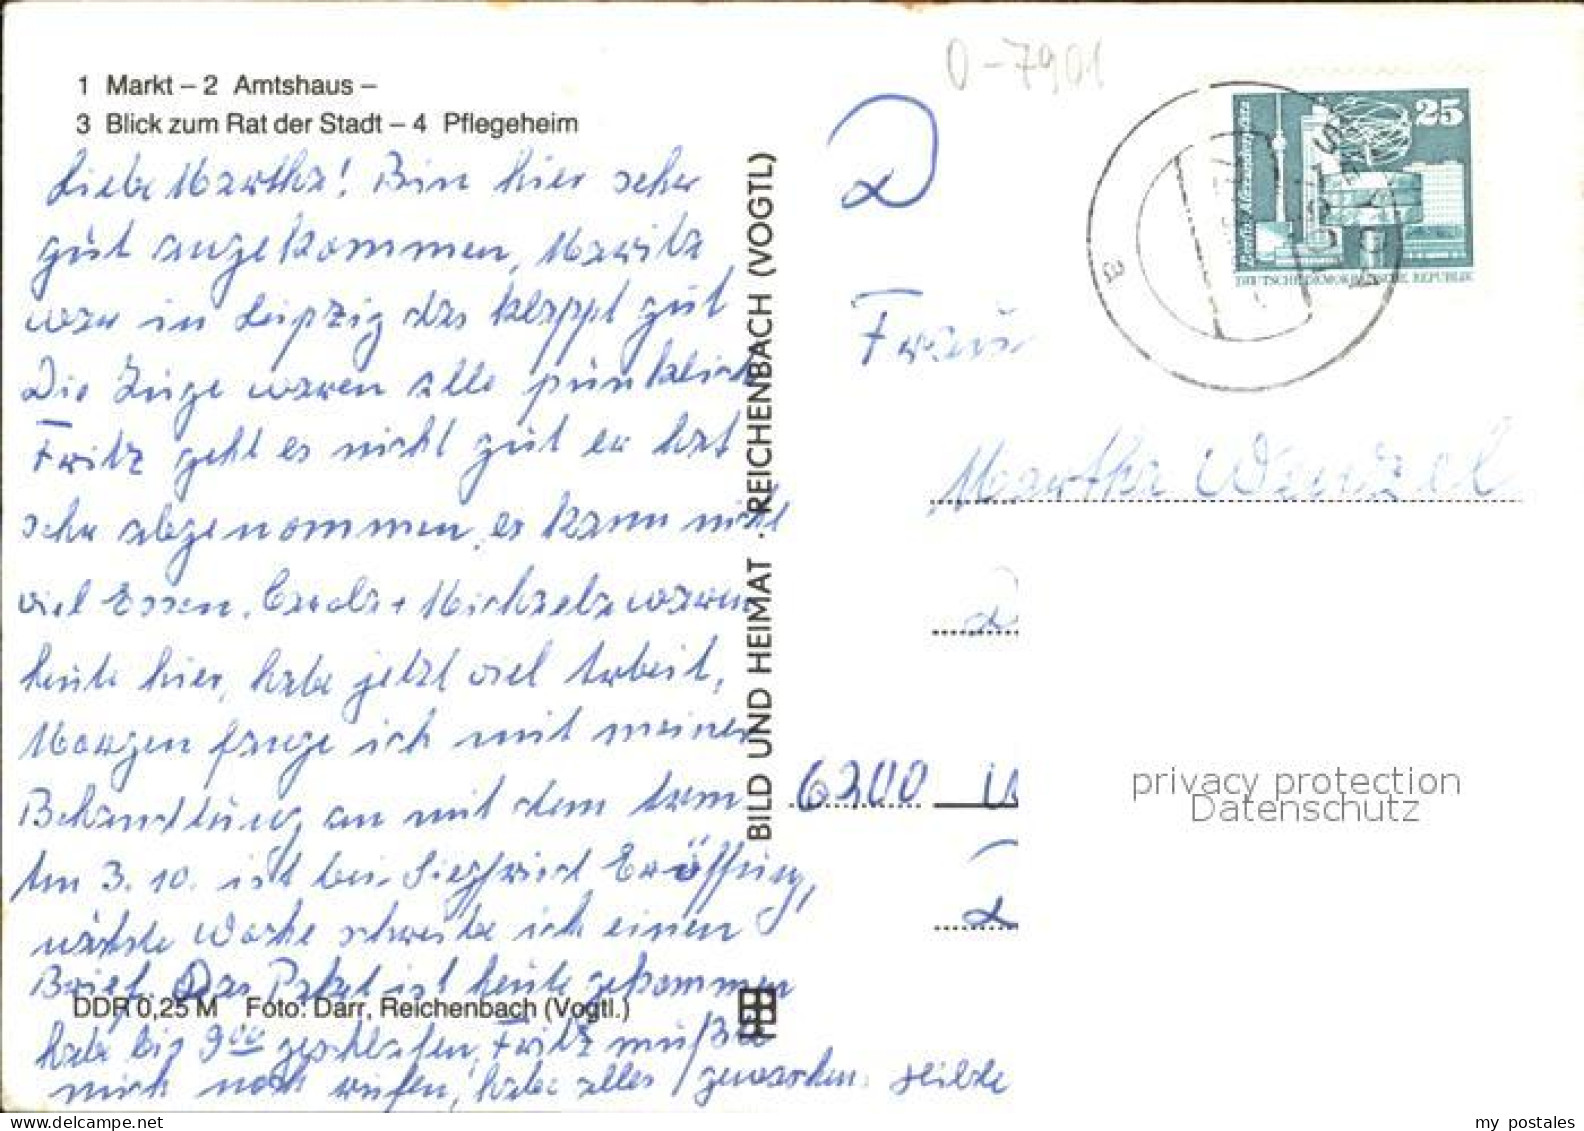 1 Markt – 2 Amtshaus –
3 Blick zum Rat der Stadt – 4 Pflegeheim
Liebe Martha! Bin hier sehr
gut angekommen, Marita
war in Leipzig das klappt gut
Die Züge waren alle pünktlich
Fritz geht es nicht gut er hat
sehr abgenommen, er kann nicht
viel Essen. Carola + Michaela waren
heute hier, habe jetzt viel Arbeit,
Morgen fange ich mit meiner
Behandlung an mit dem
Am 3. 10. ist bei Siegfried Eröffnung,
nächste Woche schreibe ich einen
Brief. Das Paket ist heute gekommen
DDR 0,25 M Foto: Darr, Reichenbach (Vogtl.)
habe bis 9 00 geschlafen, Fritz mußte
mich noch rufen, habe alles gewaschen. Hilde
BILD UND HEIMAT · REICHENBACH (VOGTL)
0-7901
D
Frau
Martha Wenzel
6200 W
25
Berlin, Alexanderplatz
DEUTSCHE DEMOKRATISCHE REPUBLIK
a
privacy protection
Datenschutz
my postales